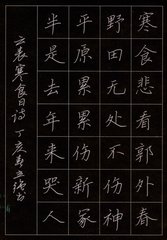 寒食悲看郭外春
野田无处不伤神
平原累累伤新冢
半是去年来哭人
云表寒食日诗 丁亥